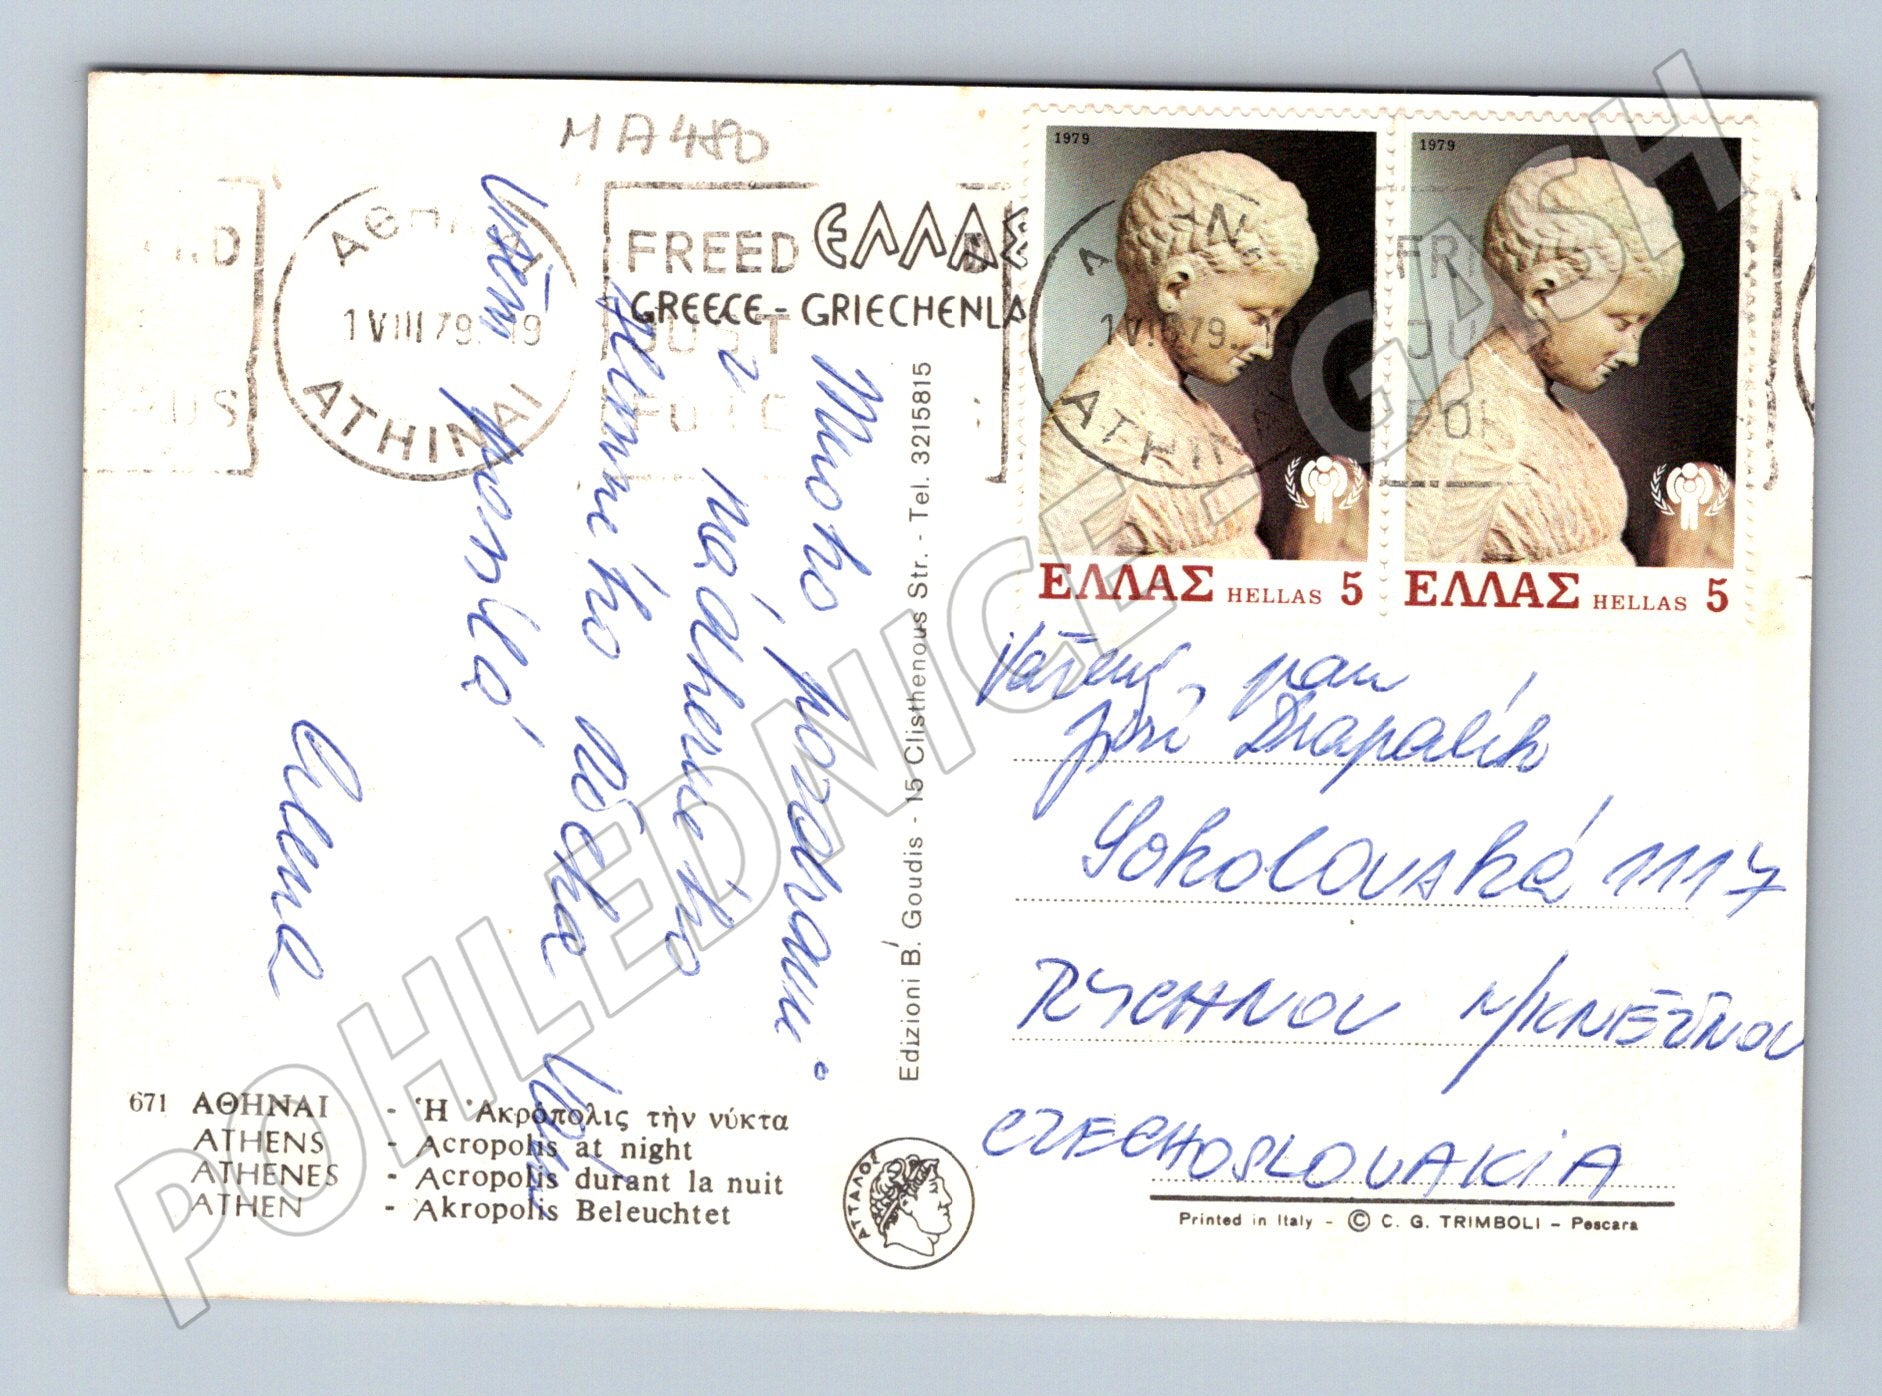 MA480
ΑΘΗΝΑΙ
1 VIII 79. 19
ATHINAI
FREED
JUST
ΕΛΛΑΣ
GREECE - GRIECHENLA
1979
ΕΛΛΑΣ HELLAS 5
1979
ΕΛΛΑΣ HELLAS 5
Mnoho pozdravů
i nádherného
slunného
Vám posílá
Alena
Edizioni B. Goudis - 15 Clisthenous Str. - Tel. 3215815
Vážený pan
Jiří Drapalík
Sokolovská 1117
RYCHNOV N/KNĚŽNOU
CZECHOSLOVAKIA
671 ΑΘΗΝΑΙ - Ἡ Ἀκρόπολις τὴν νύκτα
ATHENS - Acropolis at night
ATHENES - Acropolis durant la nuit
ATHEN - Akropolis Beleuchtet
ΑΤΤΑΛΟΣ
Printed in Italy - © C. G. TRIMBOLI - Pescara
POHLEDNICE-GASH